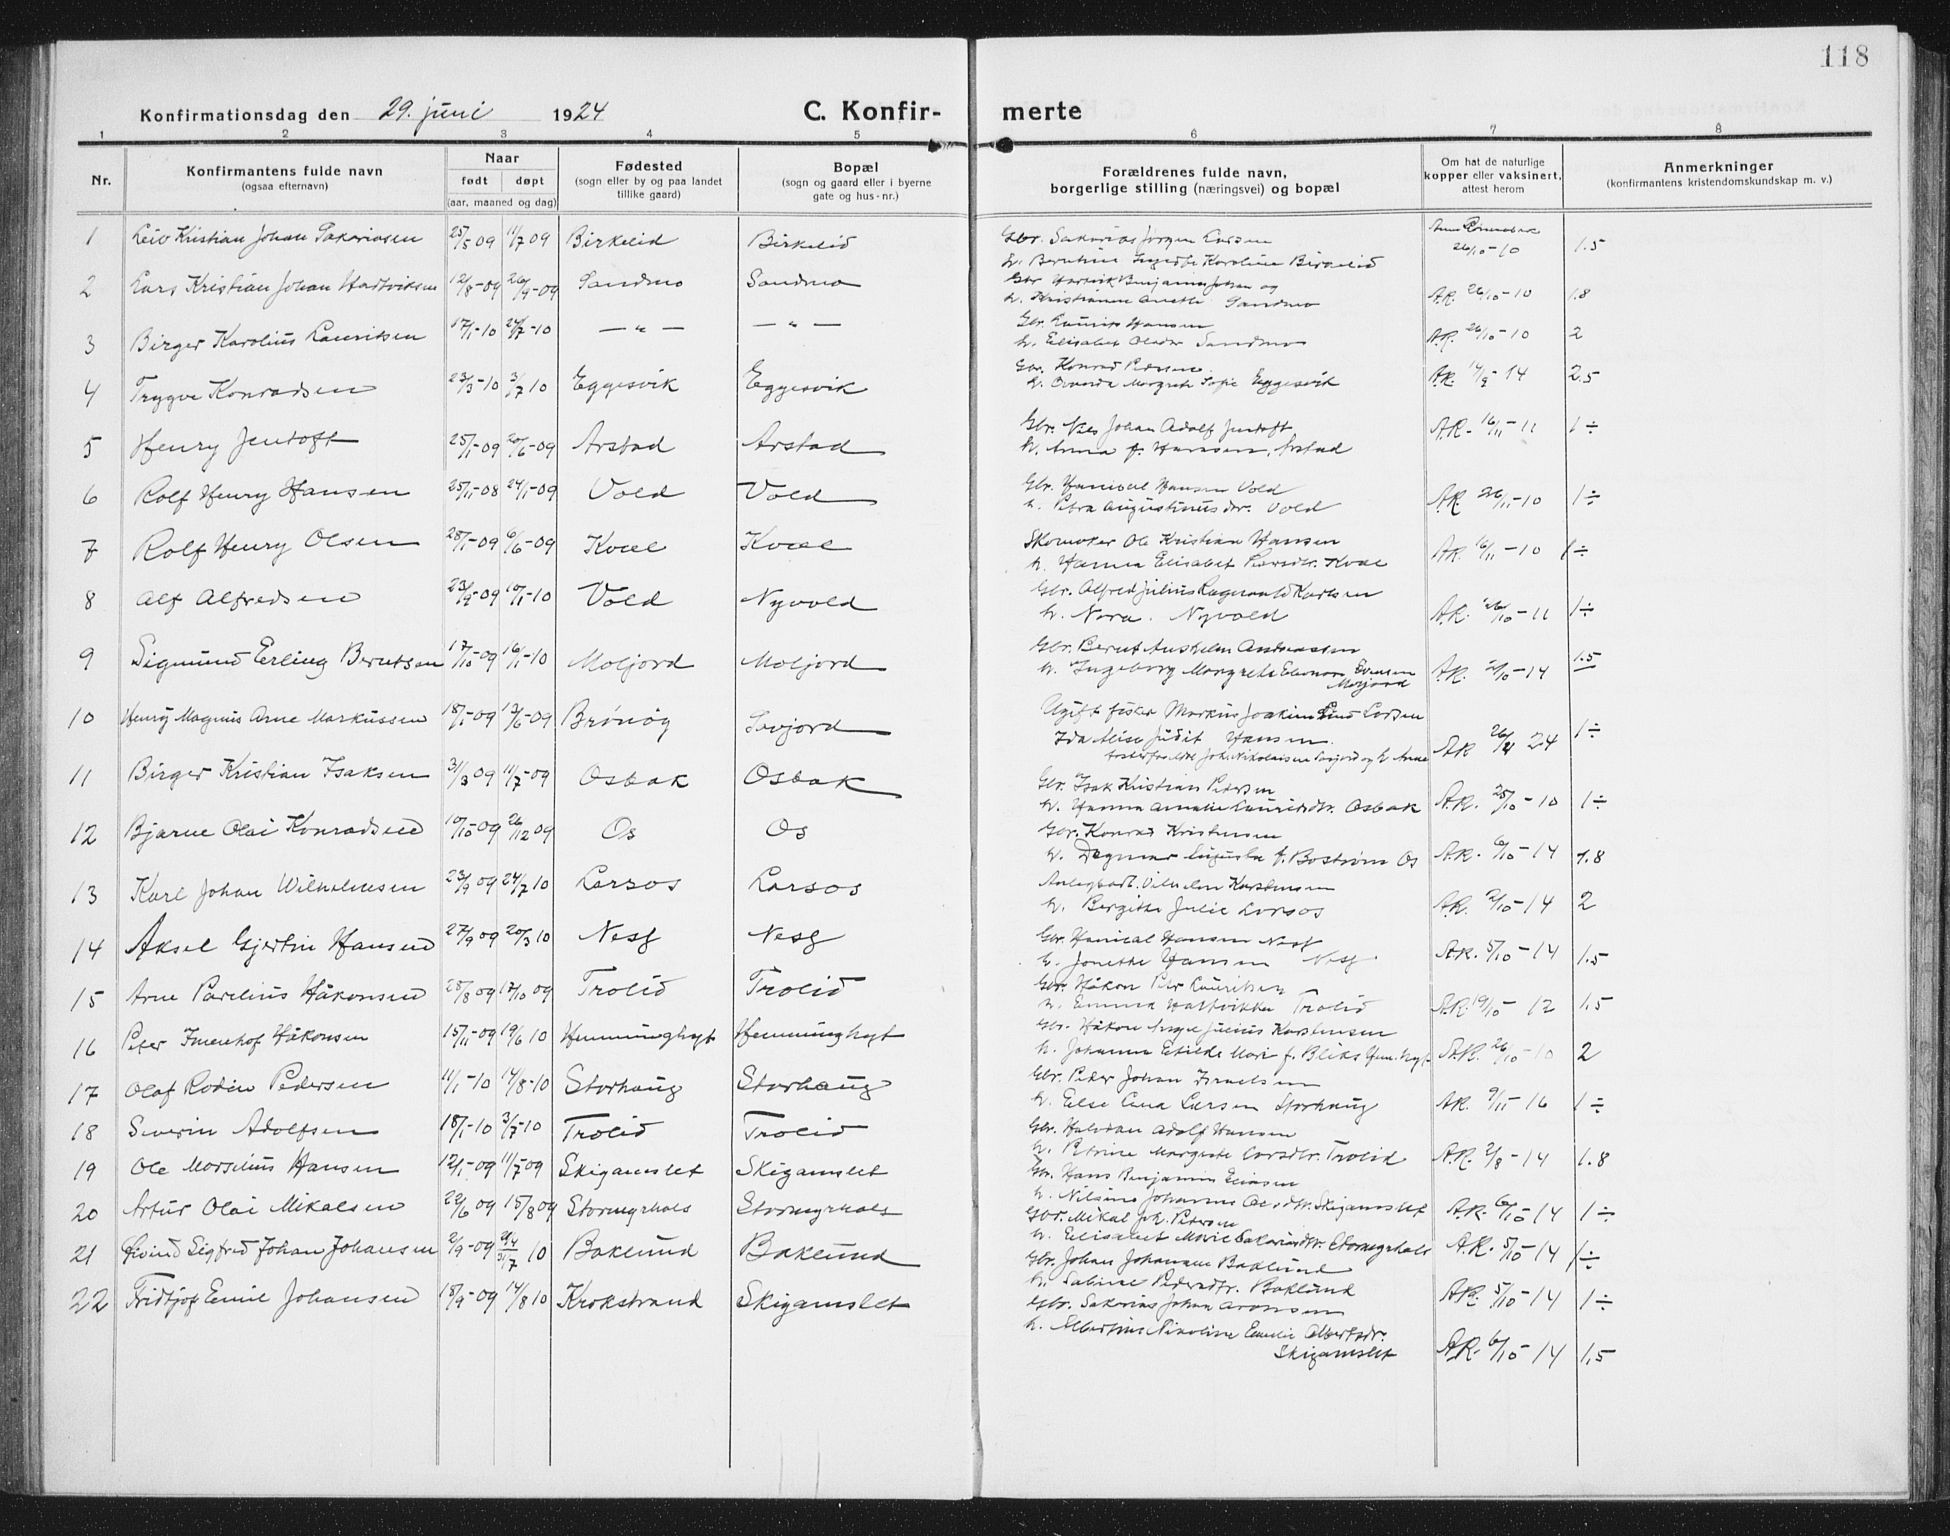 118
Konfirmationsdag den 29. juni 1924
C. Konfirmerte
1 2 3 4 5 6 7 8
Nr.
Konfirmantens fulde navn
(ogsaa efternavn)
Naar
født døpt
(aar, maaned og dag)
Fødested
(sogn eller by og paa landet
tillike gaard)
Bopæl
(sogn og gaard eller i byerne
gate og hus-nr.)
Forældrenes fulde navn,
borgerlige stilling (næringsvei) og bopæl
Om hat de naturlige
kopper eller vaksinert,
attest herom
Anmerkninger
(konfirmantens kristendomskundskap m. v.)
1 Leiv Kristian Johan Sakariasen 25/5 09 11/7 09 Birkelid Birkelid Gbr. Sakarias Jørgen Larsen 26/10-10 1.5
h. Karoline Birkelid
2 Lars Kristian Johan Hartviksen 12/8-09 26/9-09 Sandmo Sandmo Gbr Hartvik Benjamin Johan og A.R. 26/10-10 1.8
h. Kristianne Anette Sandmo
3 Birger Karolius Lauritsen 17/1-10 24/7-10 — " — — " — Gbr. Laurits Hansen A.R. 26/10-10 2
h. Elisabet Sandmo
4 Trygve Konradsen 23/3-10 3/7 10 Eggesvik Eggesvik Gbr. Konrad A.R. 14/9-14 2.5
h. Margrete Sofie Eggesvik
5 Henry Jentoft 25/1-09 20/6-09 Arstad Arstad Gbr. Johan Adolf Jentoft A.R. 16/11-11 1 ÷
h. Anna f. Hansen, Arstad
6 Rolf Henry Hansen 25/11-08 24/1-09 Vold Vold Gbr. Hansen Vold A.R. 26/11-10 1 ÷
h. Petra Augustinusdr. Vold
7 Rolf Henry Olsen 28/1-09 6/6-09 Kvæl Kvæl Skomaker Ole Kristian Hansen A.R. 16/11-10 1 ÷
h. Hanna Elisabet Larsdtr. Kvæl
8 Alf Alfredsen 23/9-09 10/1-10 Vold Nyvold Gbr. Alfred Julius Ragnvald Karlsen A.R. 26/10-11 1 ÷
h. Nora. Nyvold
9 Sigmund Erling Berntsen 17/10-09 16/1-10 Moljord Moljord Gbr. Bernt Anshelm Andreassen A.R. 2/10-14 1.5
h. Ingeborg Margrete Eleonora Evensen
Moljord
10 Henry Magnus Arne Markussen 18/1-09 13/6-09 Brønøy Sevjord Ugift fisker Markus Joakim Lind Larsen A.R. 24 1 ÷
Ida Alise Judit Hansen.
11 Birger Kristian Isaksen 31/3 09 11/7-09 Osbak Osbak Gbr. Isak Kristian Petersen A.R. 25/10-10 1 ÷
h. Hanna Amalie Lauritsdtr. Osbak
12 Bjarne Olai Konradsen 10/10-09 26/12 09 Os Os Gbr. Konrad Kristensen A.R. 6/10-14 1.8
h. Dagmar Augusta f. Bostrøm Os
13 Karl Johan Wilhelmsen 23/9 09 24/7 10 Larsos Larsos Vilhelm Karstensen A.R. 2/10-14 2
h. Bergitte Julie Larsos
14 Aksel Gjertin Hansen 27/9 09 20/3 10 Nesø Nesø Gbr. Hanical Hansen Nesø A.R. 5/10-14 1.5
h. Jonette Hansen Nesø
15 Arne Parelius Håkonsen 28/8 09 17/10 09 Trolid Trolid Gbr. Håkon Per Lauritsen A.R. 19/10-12 1.5
h. Emma Hartvikka Trolid
16 Peter Imenhof Håkonsen 15/11-09 19/6 10 Hemminghyt Hemminghyt Gbr. Håkon Julius Karstensen A.R. 26/10-10 2
h. Johanna Etilde Marie f. Bliks Hem.hyt
17 Olaf Rodin Pedersen 11/1-10 14/8-10 Storhaug Storhaug Gbr. Peder Johan Israelsen A.R. 9/11-16 1 ÷
h. Else Ana Larsen Storhaug
18 Severin Adolfsen 18/1-10 3/7-10 Trolid Trolid Gbr. Halvdan Adolf Hansen A.R. 2/8-14 1.8
h. Petrine Margrete Larsdtr. Trolid
19 Ole Morselius Hansen 12/1-09 11/7 09 Skigamslet Skigamslet Gbr. Hans Benjamin A.R. 6/10-14 1 ÷
h. Nilsine Johanne Skigamslet
20 Artur Olai Mikalsen 22/6 09 15/8 09 Stormyrhals Stormyrhals Gbr. Mikal Joh. Petersen A.R. 5/10-14 1 ÷
h. Elisabet Marie Sakariasdtr. Stormyrhals
21 Øivind Sigfred Johan Johansen 2/9-09 31/7 10 Baklund Baklund Gbr. Johan Johansen Baklund A.R. 5/10-14 1 ÷
h. Sabine Pedersdtr. Baklund
22 Fridtjof Emil Johansen 18/9-09 14/8 10 Krokstrand Skigamslet Gbr. Sakarias Johan Aronsen A.R. 6/10-14 1.5
h. Albertine Nikoline Emelie Albertsdr.
Skigamslet